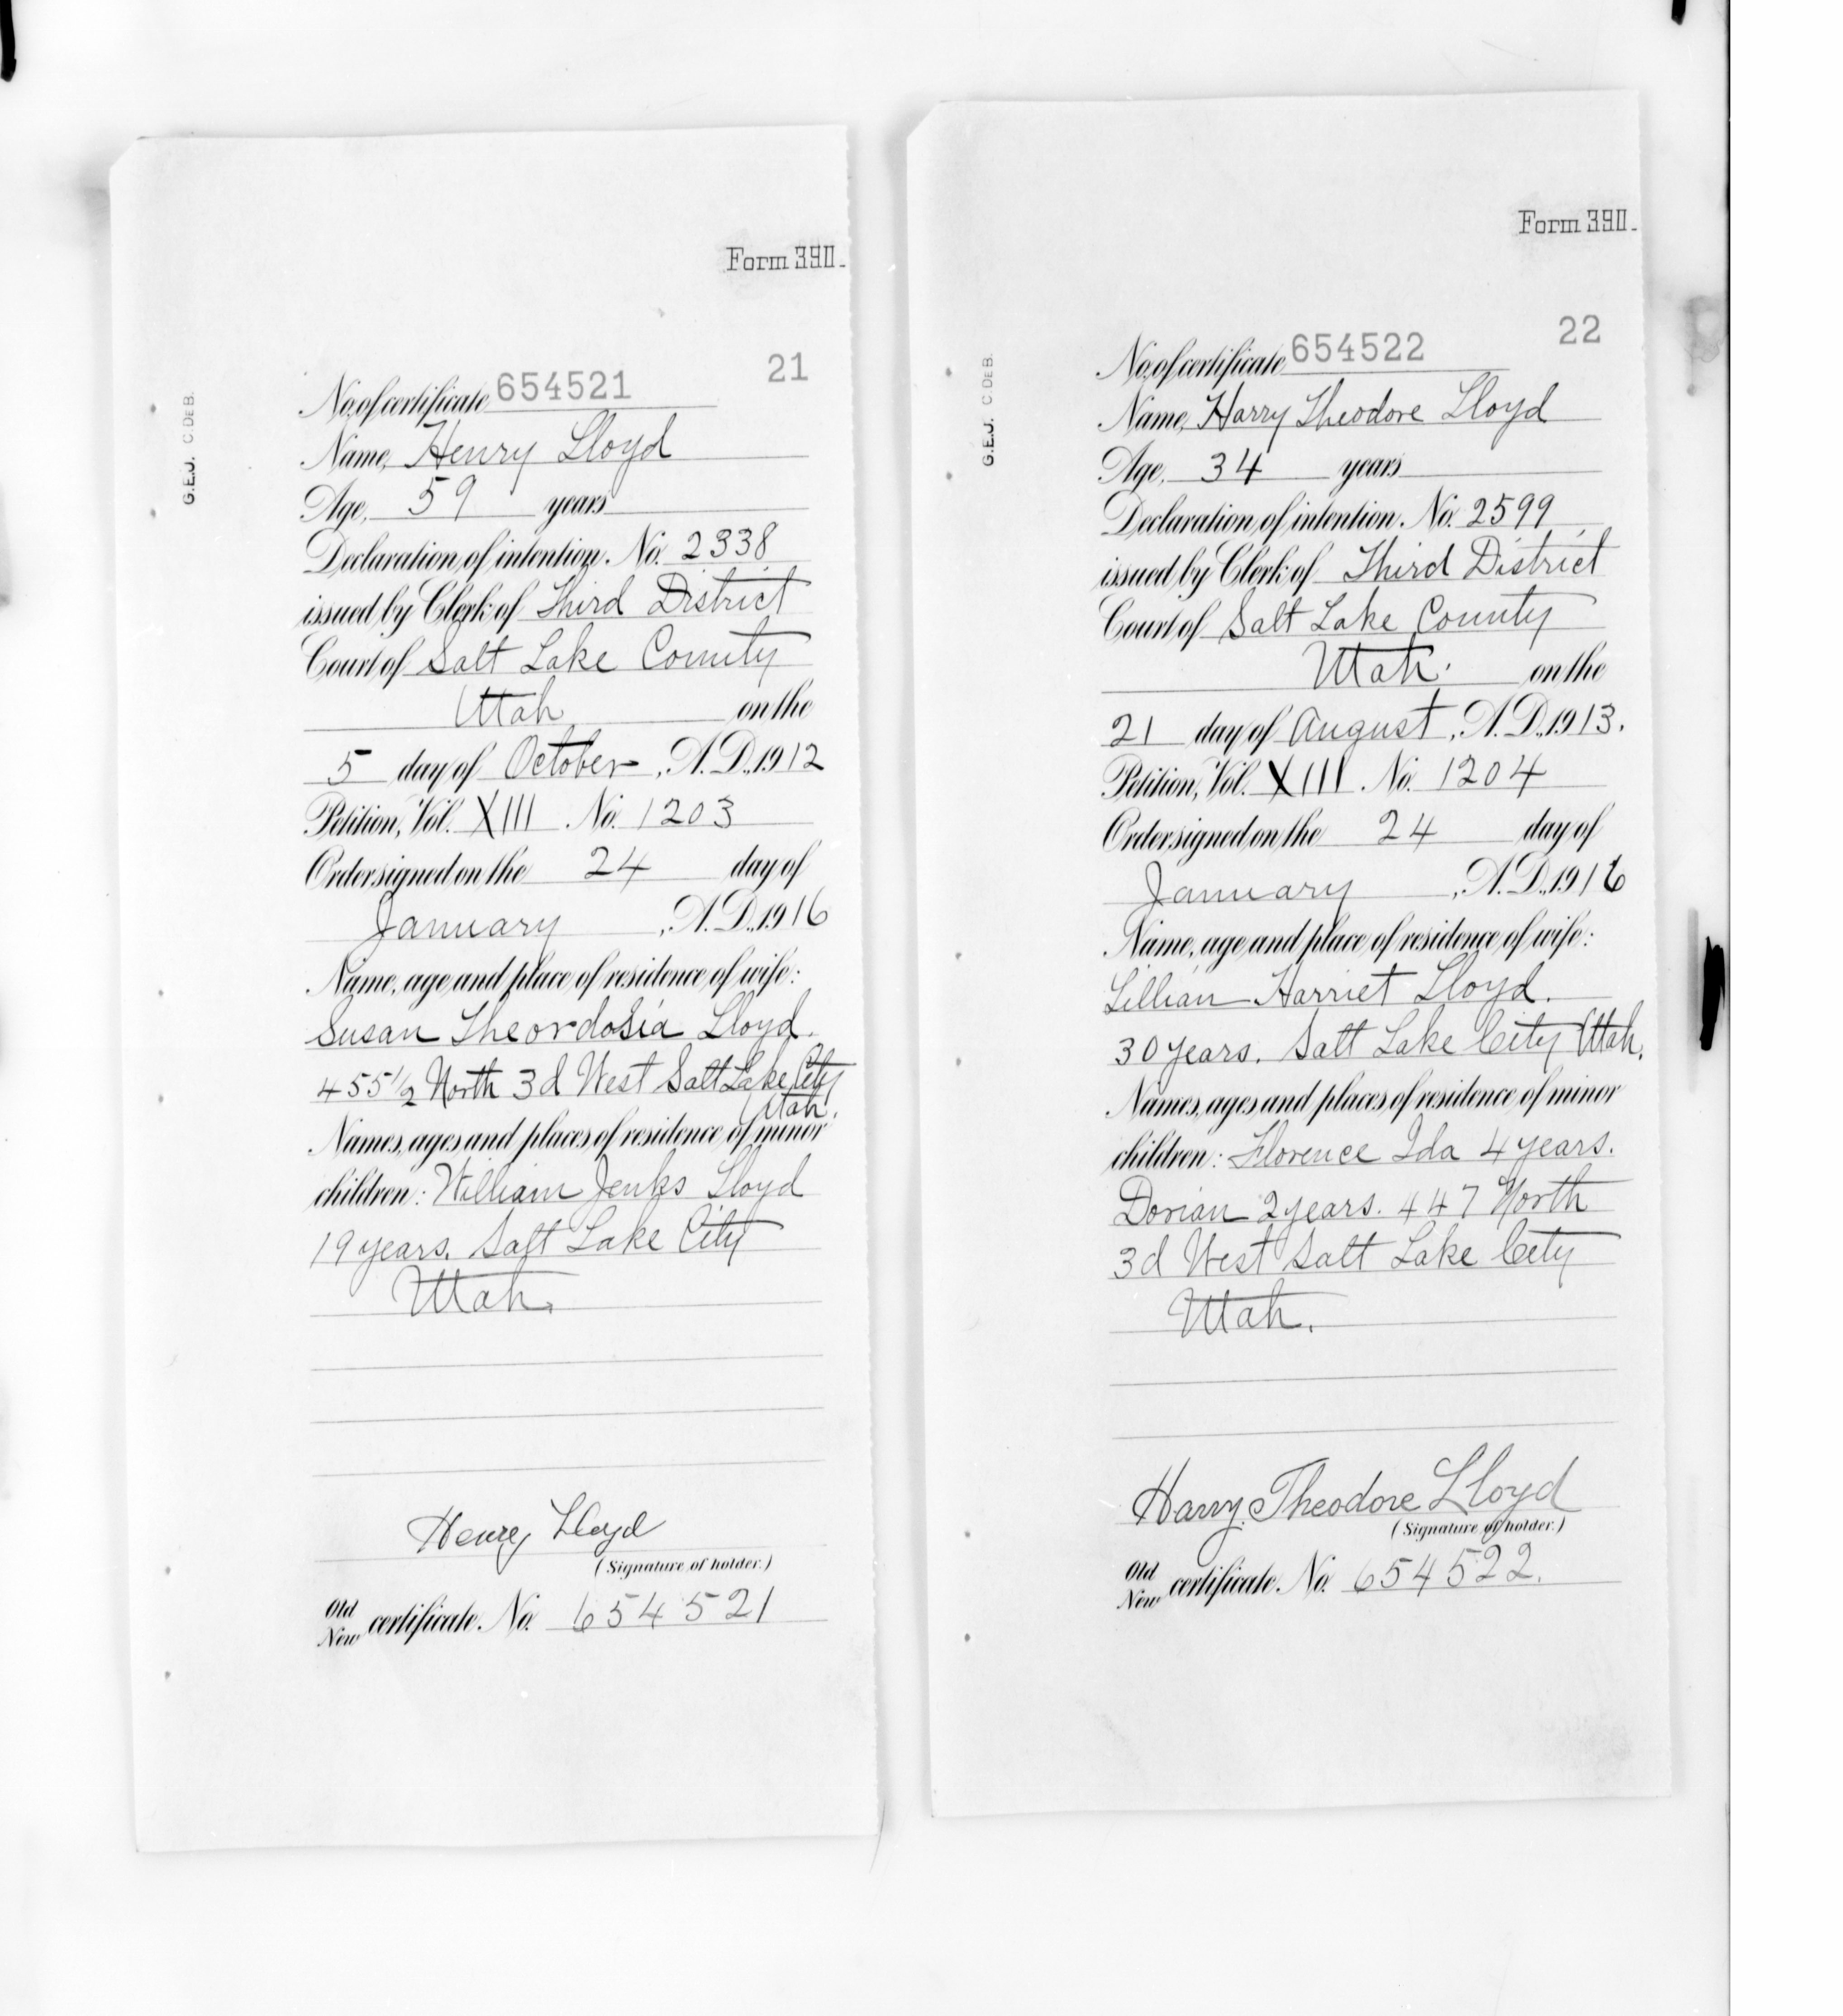 Form 390.
21
No. of certificate 654521
Name, Henry Lloyd
Age, 59 years
Declaration of intention. No. 2338
issued by Clerk of Third District
Court of Salt Lake County
Utah on the
5 day of October, A.D., 1912
Petition, Vol. XIII No. 1203
Order signed on the 24 day of
January, A.D., 1916
Name, age and place of residence of wife:
Susan Theordosia Lloyd.
455 1/2 North 3d West Salt Lake City
Utah.
Names, ages and places of residence of minor
children: William Jenks Lloyd
19 years. Salt Lake City
Utah.
Henry Lloyd
(Signature of holder.)
Old
New certificate. No. 654521
G.E.J. C.DEB.
Form 390.
22
No. of certificate 654522
Name, Harry Theodore Lloyd
Age, 34 years
Declaration of intention. No. 2599
issued by Clerk of Third District
Court of Salt Lake County
Utah. on the
21 day of August, A.D., 1913.
Petition, Vol. XIII No. 1204
Order signed on the 24 day of
January, A.D., 1916
Name, age and place of residence of wife:
Lillian Harriet Lloyd.
30 years. Salt Lake City Utah.
Names, ages and places of residence of minor
children: Florence Ida 4 years.
Dorian 2 years. 447 North
3d West Salt Lake City
Utah.
Harry Theodore Lloyd
(Signature of holder.)
Old
New certificate. No. 654522.
G.E.J. C.DEB.